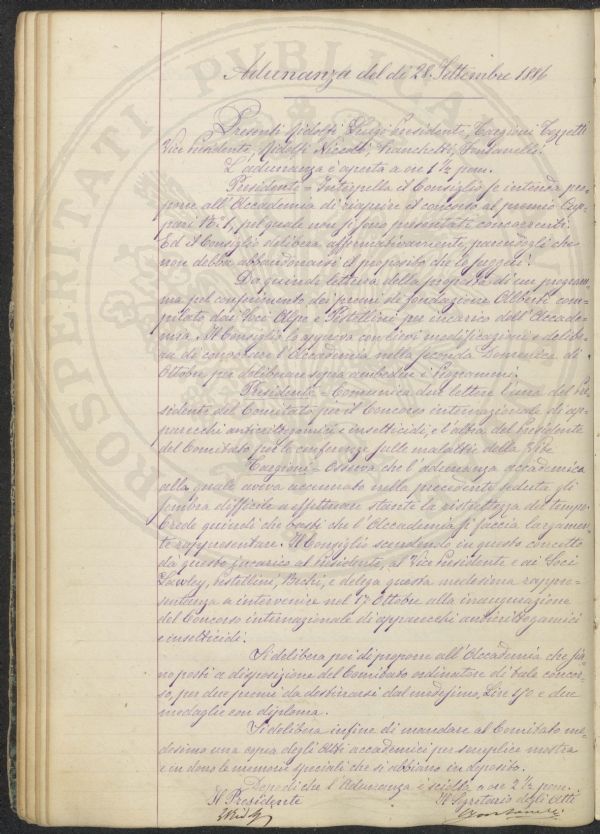 Adunanza del dì 28 Settembre 1886
Presenti Ridolfi Luigi Presidente, Targioni Tozzetti
Vice Presidente, Ridolfi Niccolò, Franchetti, Fontanelli.
L'adunanza è aperta a ore 1 ½ pom.
Presidente – Interpella il Consiglio se intenda pro=
porre all'Accademia di riaprire il concorso al premio Cup=
pari N.º 1, pel quale non si sono presentati concorrenti.
Ed il Consiglio delibera affermativamente, parendogli che
non debba abbandonarsi il proposito che lo suggerì.
Dà quindi lettura della proposta di un program=
ma pel conferimento dei premi di fondazione Alberti com=
pilato dai Soci Alpe e Pestellini per incarico dell'Accade=
mia. Il Consiglio lo approva con lievi modificazioni e delibe=
ra di convocare l'Accademia nella seconda Domenica di
Ottobre per deliberare sopra ambedue i
Presidente – Comunica due lettere l'una del Pre=
sidente del Comitato per il Concorso internazionale di ap=
parecchi anticrittogamici e insetticidi, e l'altra del Presidente
del Comitato per le conferenze sulle malattie della Vite
Targioni – Osserva che l'adunanza accademica
alla quale aveva accennato nella precedente seduta gli
sembra difficile a effettuare stante la ristrettezza del tempo.
Crede quindi che basti che l'Accademia si faccia largamen=
te rappresentare. Il Consiglio scendendo in questo concetto
dà questo incarico al Presidente, al Vice Presidente e ai Soci
Lawley, Pestellini, Bechi, e delega questa medesima rappre=
sentanza a intervenire nel 17 Ottobre alla inaugurazione
del Concorso internazionale di apparecchi anticrittogamici
e insetticidi.
Si delibera poi di proporre all'Accademia che sia=
no posti a disposizione del Comitato ordinatore di tale concor=
so, per due premi da destinarsi dal medesimo, Lire 150 e due
medaglie con diploma.
Si delibera infine di mandare al Comitato me=
desimo una copia degli Atti accademici per semplice mostra
e in dono le memorie speciali che si abbiano in deposito.
Dopo di che l'Adunanza è sciolta a ore 2 ½ pom.
Il Presidente
Il Segretario degli Atti
PROSPERITATI PUBLICAE